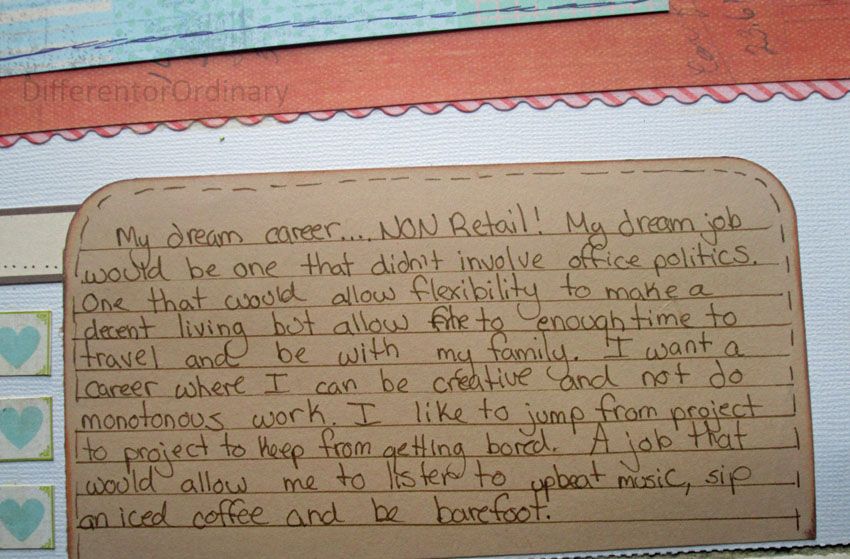 DifferentorOrdinary
My dream career.... NON Retail! My dream job
would be one that didn't involve office politics.
One that would allow flexibility to make a
decent living but allow to enough time to
travel and be with my family. I want a
career where I can be creative and not do
monotonous work. I like to jump from project
to project to keep from getting bored. A job that
would allow me to listen to upbeat music, sip
an iced coffee and be barefoot.